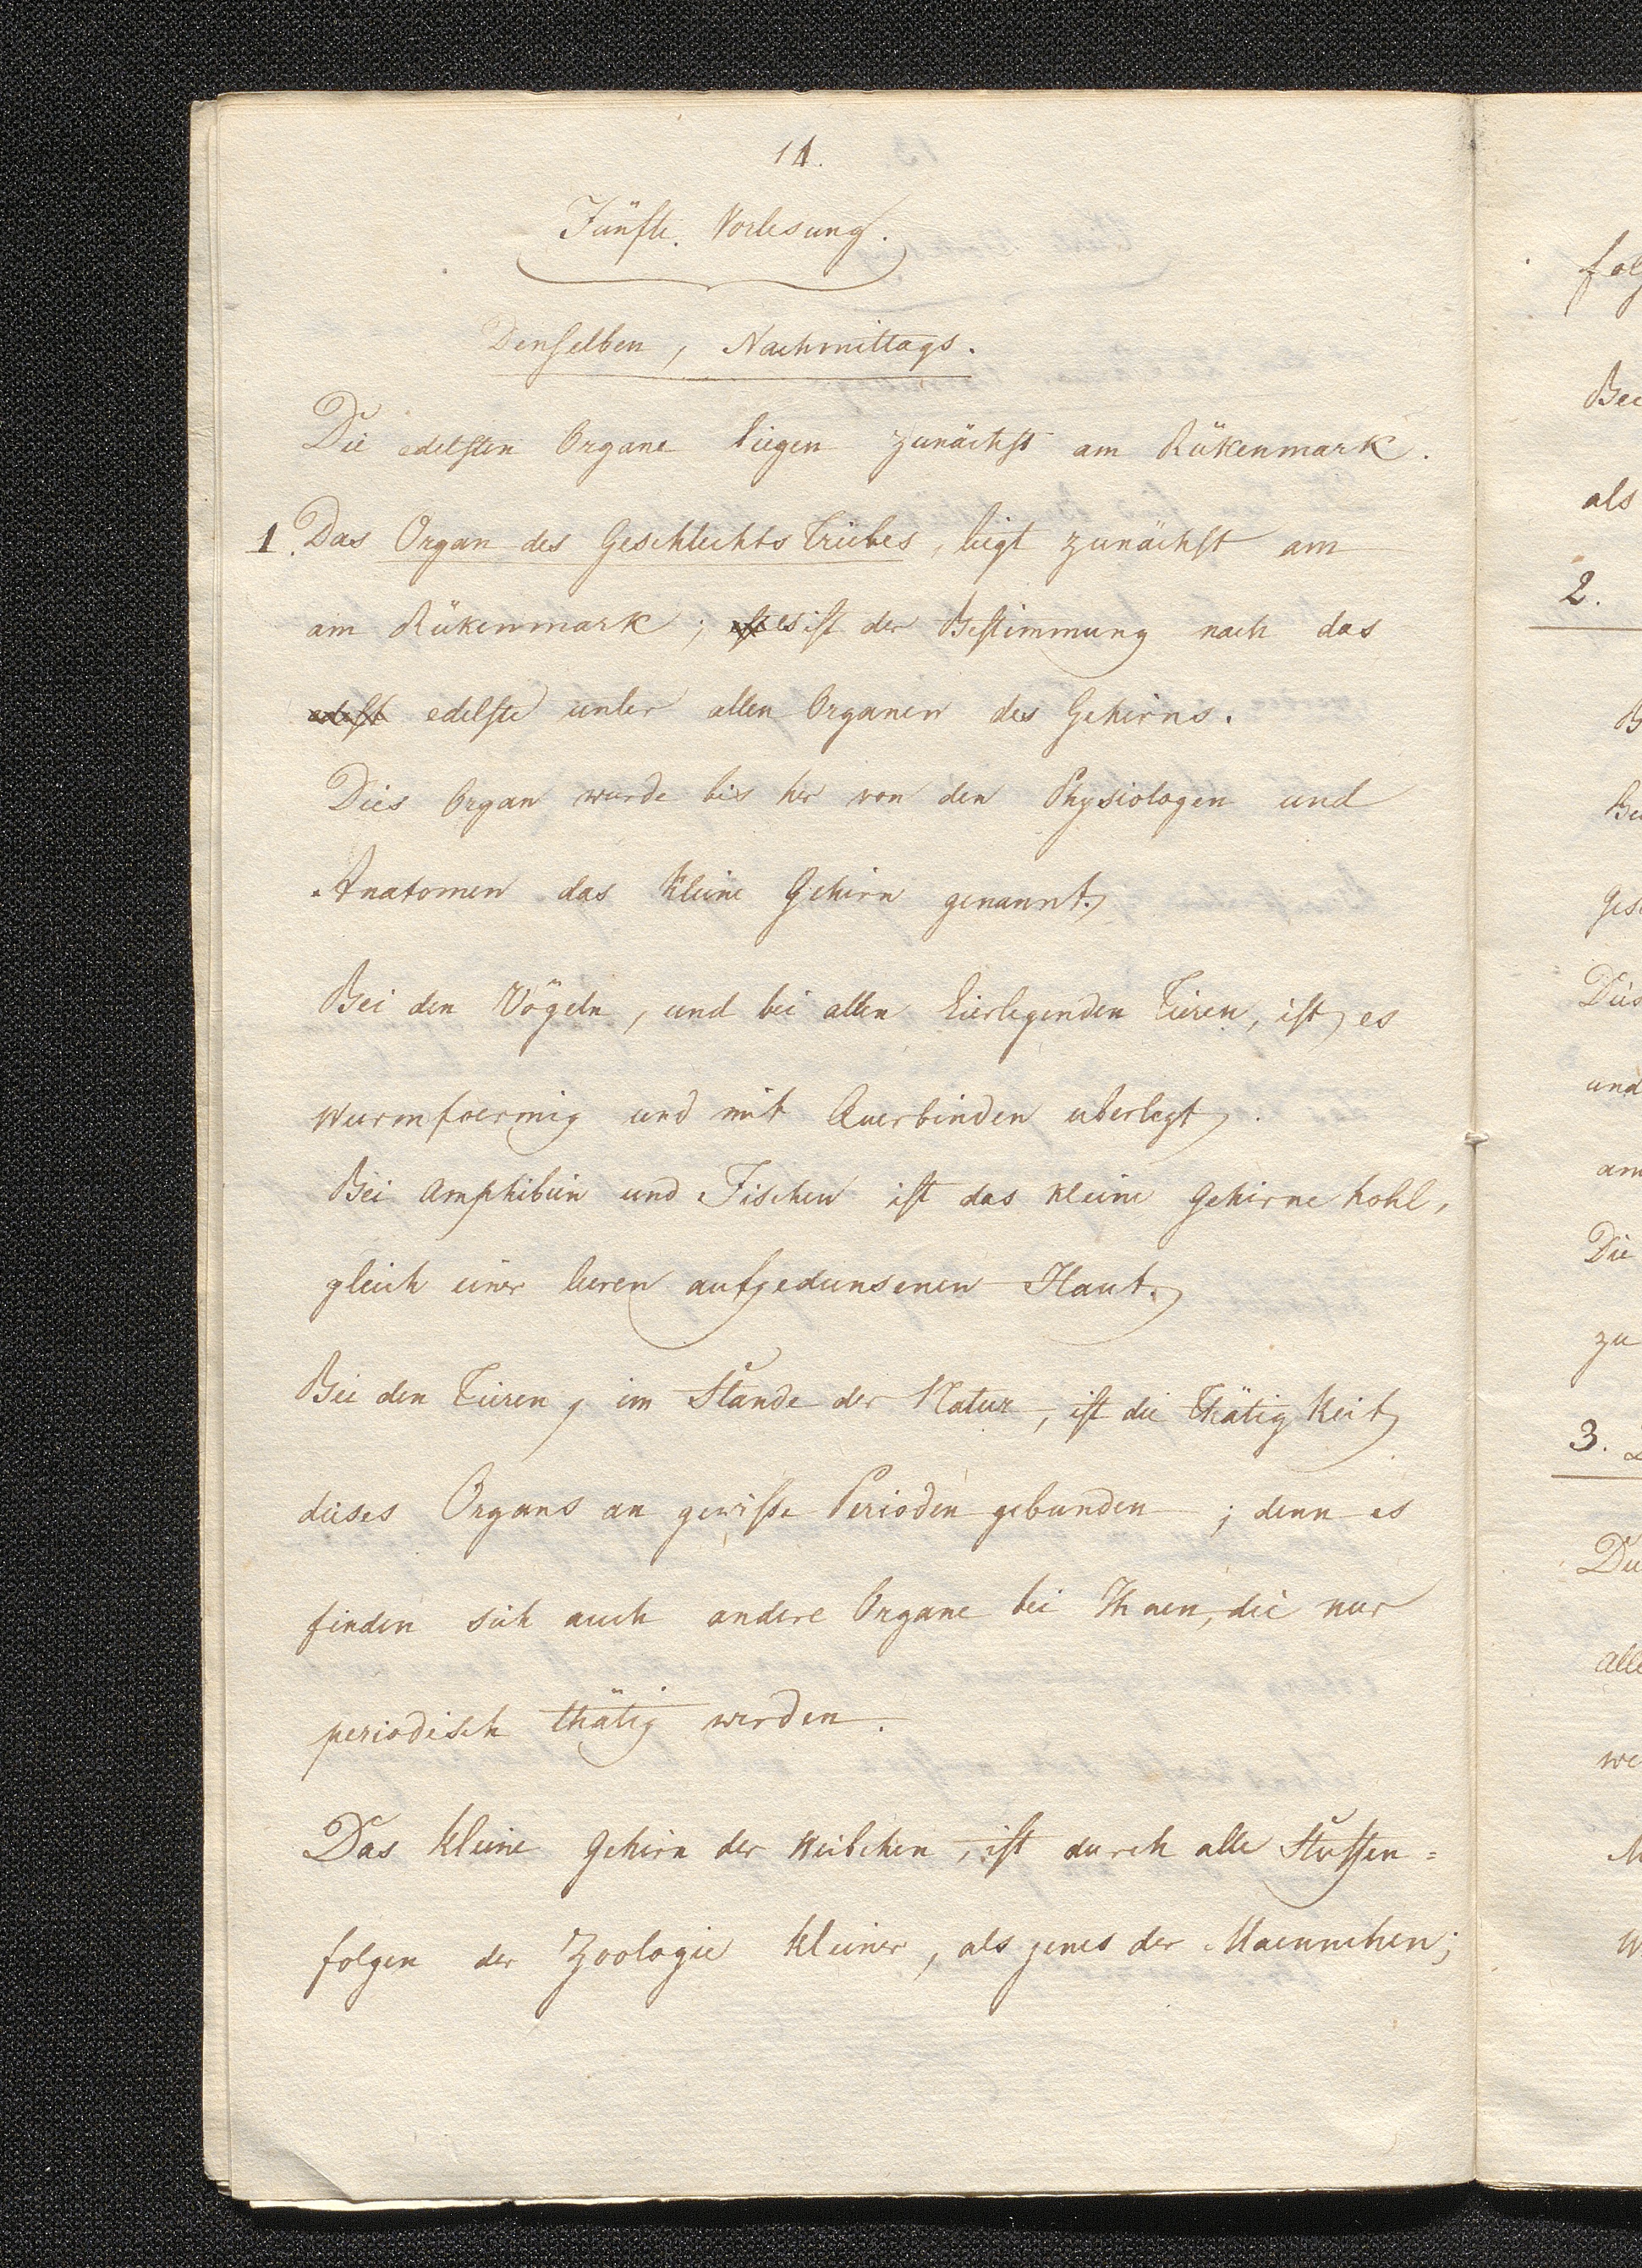 14.
Fünfte. Vorlesung.
Denselben, Nachmittags.
Die edelsten Organe liegen zunächst am Rükenmark.
1. Das Organ des Geschlechts Triebes, liegt zunächst am
am Rükenmark; ist es ist der Bestimmung nach das
edelst edelste unter allen Organen des Gehirns.
Dies Organ wurde bis her von den Physiologen und
Anatomen das Kleine Gehirn genannt.
Bei den Vögeln, und bei allen Eierlegenden Tieren, ist es
wurmfoermig und mit Querbinden uberlegt.
Bei Amphibien und Fischen ist das kleine Gehirne hohl,
gleich einer leeren aufgedunsenen Haut.
Bei den Tieren, im Stande der Natur, ist die Thätigkeit
dieses Organs an gewisse Perioden gebunden; denn es
finden sich auch andere Organe bei Ihnen, die nur
periodisch thätig werden.
Das kleine Gehirn der Weibchen, ist durch alle Stuffen=
folgen der Zoologie kleiner, als jenes der Maennchen;
fol
Bei
als
2.
B
Be
Ges
Dies
und
am
Die
zu
3.
Die
alle
we
M
W